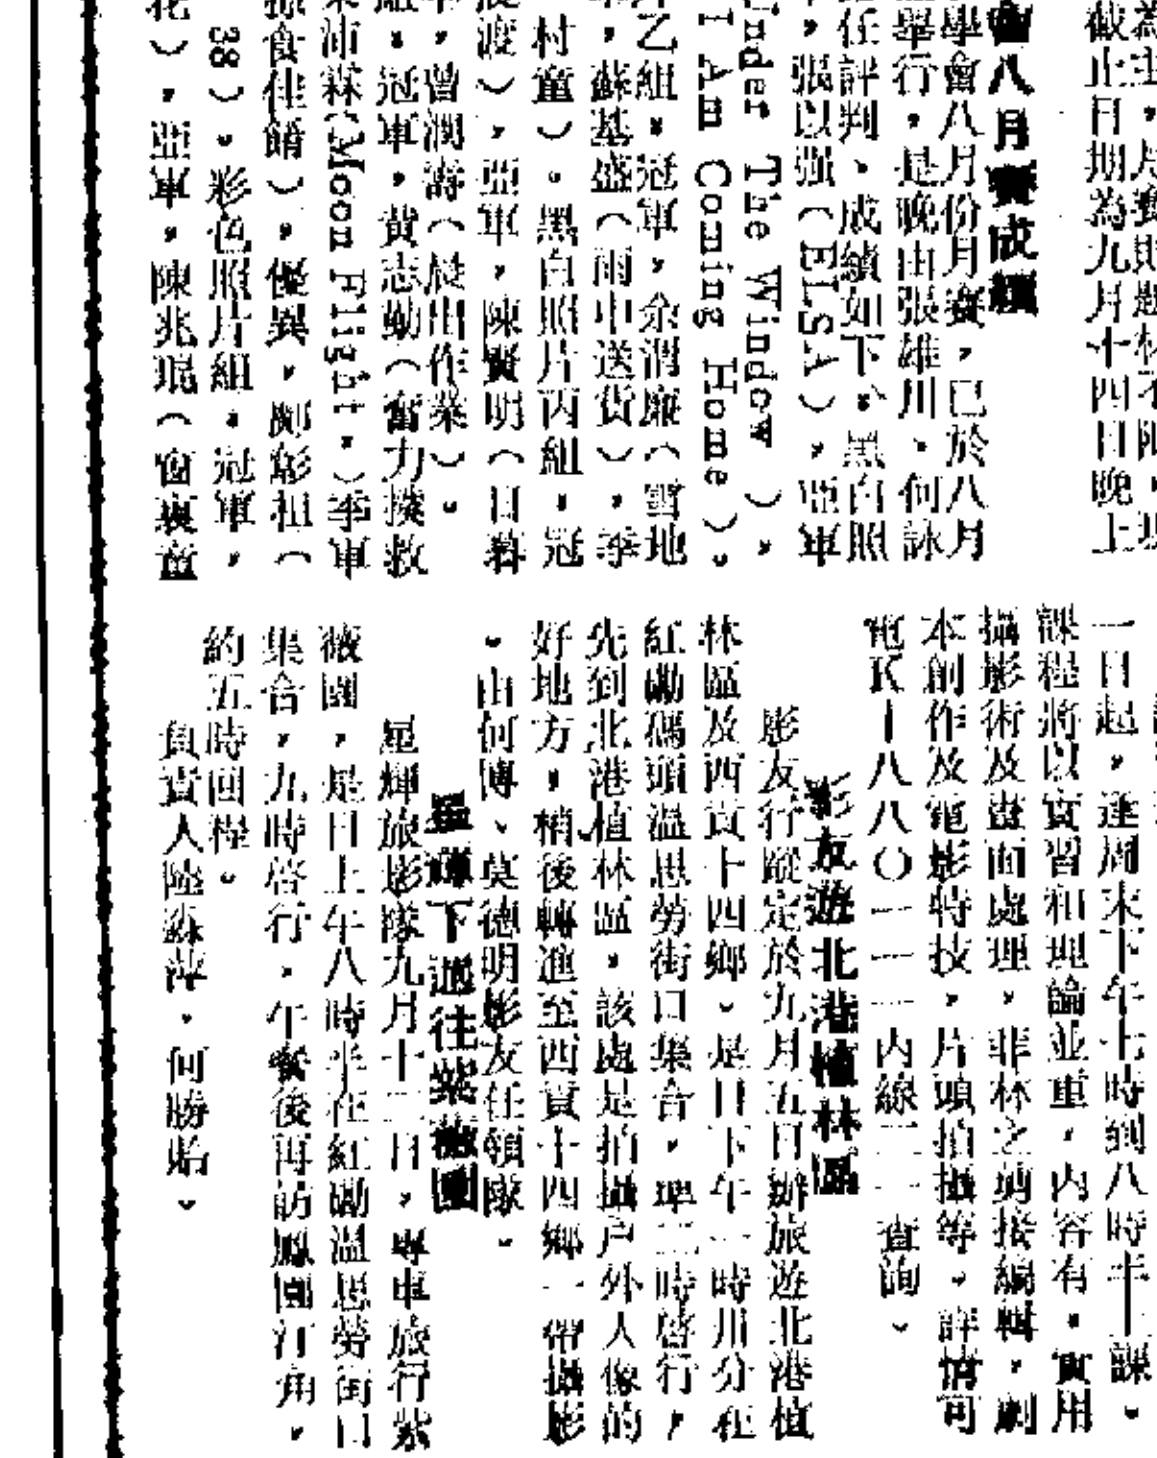 為主，月賽則題材不限，現
截止日期為九月十四日晚上
會八月賽成績
學會八月份月賽，已於八月
舉行，是晚由張雄川、何詠
任評判、成績如下：黑白照
，張以强（ELSA），亞軍
nder The Window），
I Am Coming Home）。
乙組，冠軍，余渭廉（雪地
，蘇基盛（雨中送貨），季
村童）。黑白照片丙組，冠
渡），亞軍，陳賢明（日暮
，曾潤壽（晨出作業）。
，冠軍，黃志勤（奮力撲救
沛霖(Moon Flight，)季軍
掠食佳餚），優異，鄭彰祖（
38），彩色照片組，冠軍，
花），亞軍，陳兆琨（窗裏童
一日起，逢周末下午七時到八時半上課。
課程將以實習和理論並重，内容有，實用
攝影術及畫面處理，菲林之剪接編輯，劇
本創作及電影特技，片頭拍攝等。詳情可
電K－八八〇一一一内線二二查詢。
影友遊北港植林區
影友行蹤定於九月五日辦旅遊北港植
林區及西貢十四鄉。是日下午一時卅分在
紅磡碼頭溫思勞街口集合，準二時啓行，
先到北港植林區，該處是拍攝户外人像的
好地方，稍後轉進至西貢十四鄉一帶攝影
。由何博、莫德明影友任領隊。
星輝下週往紫薇園
星輝旅影隊九月十二日，專車旅行紫
薇園，是日上午八時半在紅磡溫思勞街口
集合，九時啓行，午餐後再訪鳳園汀角，
約五時回程。
負責人陸森萍，何勝貽。